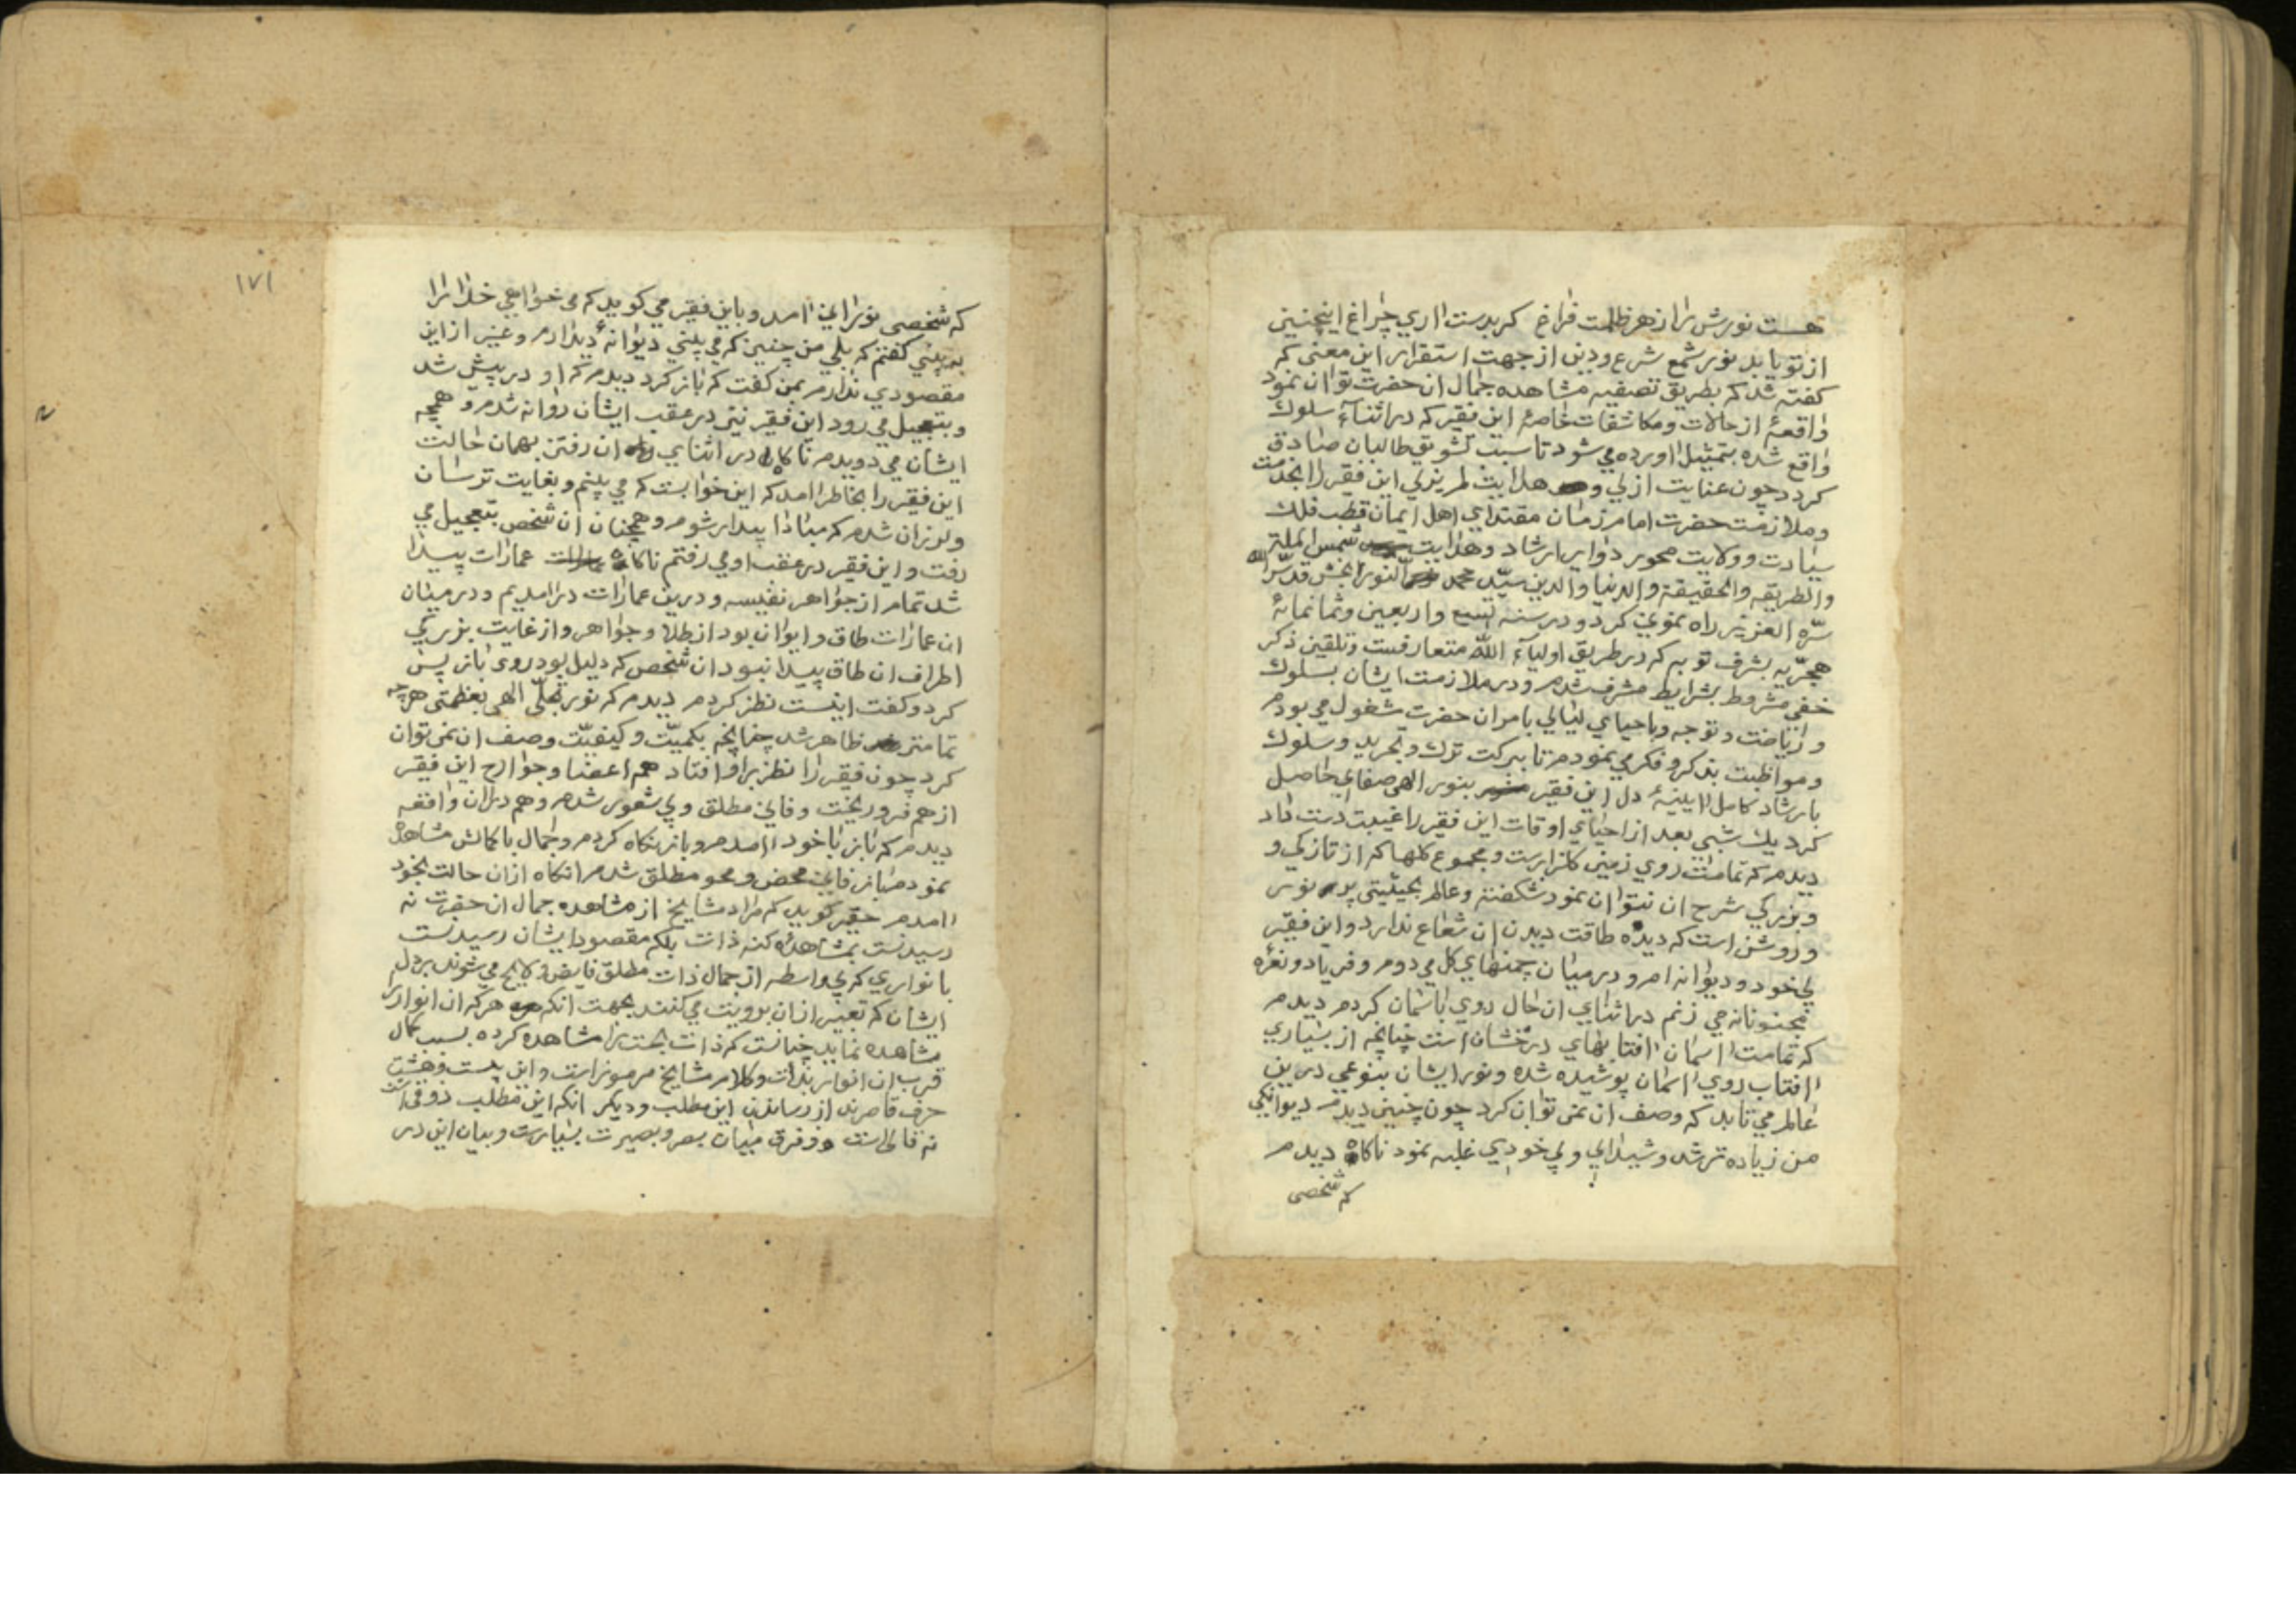 هست نورش را از هر ظلمت فراغ کر بدست اری چراغ اینچنین
از تو یابد نور شمع شرع و دین از جهت استقرار این معنی که
کفته شد که بطریق تصفیه مشاهده جمال ان حضرت توان نمود
واقعهٔ از حالات و مکاشفات خاصهٔ این فقیر که در اثنآء سلوک
واقع شده بتمثیل اورده می شود تا سبب تشویق طالبان صادق
کردد چون عنایت ازلی و هدایت لم یزلی این فقیر را بخدمت
و ملازمت حضرت امام زمان مقتدای اهل ایمان قطب فلک
سیادت و ولایت محور دوایر ارشاد و هدایت شمس الملة
والطریقه والحقیقة والدنیا والدین سیّد محمد النوربخش قدّس الله
سرّه العزیز راه نمونی کرد و در سنه تسع و اربعین و ثمانمائهٔ
هجرّیه بشرف توبه که در طریق اولیآء اللّه متعارفست و تلقین ذکر
خفی مشروط بشرایط مشرف شدم و در ملازمت ایشان بسلوک
و ریاضت و توجه و باحیای لیالی بامر ان حضرت مشغول می بودم
و مواظبت بذکر و فکر می نمودم تا ببرکت ترک و تجرید و سلوک
بارشاد کامل ایینهٔ دل این فقیر بنور الهی صفای حاصل
کرد یک شبی بعد از احیای اوقات این فقیر را غیبت دست داد
دیدم که تمامت روی زمین کلزارست و مجموع کلها که از تازکی و
و بزرکی شرح ان نتوان نمود شکفته و عالم بحیثیتی پر نور
و روشن است که دیده طاقت دیدن ان شعاع ندارد و این فقیر
بی خود و دیوانه ام و در میان چمنهای کل می دوم و فریاد و نعرهٔ
مجنونانه می زنم در اثنای ان حال روی باسمان کردم دیدم
که تمامت اسمان افتابهای درخشان است چنانچه از بسیاری
افتاب روی اسمان پوشیده شده و نور ایشان بنوعی درین
عالم می تابد که وصف ان نمی توان کرد چون چنین دیدم دیوانکی
من زیاده تر شد و شیدایی و بی خودیی غلبه نمود ناکاه دیدم
که شخصی
۱۷۱
که شخصی نورانی امد و باین فقیر می کوید که می خواهی خدا را
به بینی کفتم که بلی من چنین که می بینی دیوانهٔ دیدارم و غیر از این
مقصودی ندارم بمن کفت که باز کرد دیدم که او در پیش شد
و بتعجیل می رود این فقیر نیز در عقب ایشان روانه شدم و همچه
ایشان می دویدم ناکاه در اثنای ان رفتن بهمان حالت
این فقیر را بخاطر امد که این خوابست که می بینم و بغایت ترسان
و لرزان شدم که مبادا بیدار شوم و همچنان ان شخص بتعجیل می
رفت و این فقیر در عقب او می رفتم ناکاه عمارات پیدا
شد تمام از جواهر نفیسه و درین عمارات در امدیم و در میان
ان عمارات طاق و ایوان بود از طلا و جواهر و از غایت بزرکی
اطراف ان طاق پیدا نبود ان شخص که دلیل بود روی باز پس
کرد و کفت اینست نظر کردم دیدم که نور تجلّی الهی بعظمتی هرچه
تمامتر ظاهر شد چنانچه بکمیّت و کیفیّت وصف ان نمی توان
کرد چون فقیر را نظر بر او افتاد همه اعضا و جوارح این فقیر
از هم فرو ریخت و فانی مطلق و بی شعور شدم و هم در ان واقعه
دیدم که باز با خود امدم و باز نکاه کردم و جمال باکمالش مشاهدهٔ
نمودم باز فانی محض و محو مطلق شدم انکاه از ان حالت بخود
امدم حقیر کوید که مراد مشایخ از مشاهده جمال ان حضرت نه
رسیدنست بمشاهدهٔ کنه ذات بلکه مقصود ایشان رسیدنست
بانواری که بی واسطه از جمال ذات مطلق فایض و لایح می شوند بر دل
ایشان که تعبیر از ان برویت می کنند بجهت انکه هر که ان انوار را
مشاهده نماید چنانست که ذات بحت را مشاهده کرده بسبب کمال
قرب ان انوار بذات و کلام مشایخ مرموز است و این بیست و هشت
حرف قاصرند از رساندن این مطلب و دیکر انکه این مطلب ذوقی است
نه قالی است و فرق میان بصر و بصیرت بسیارست و بیان این در